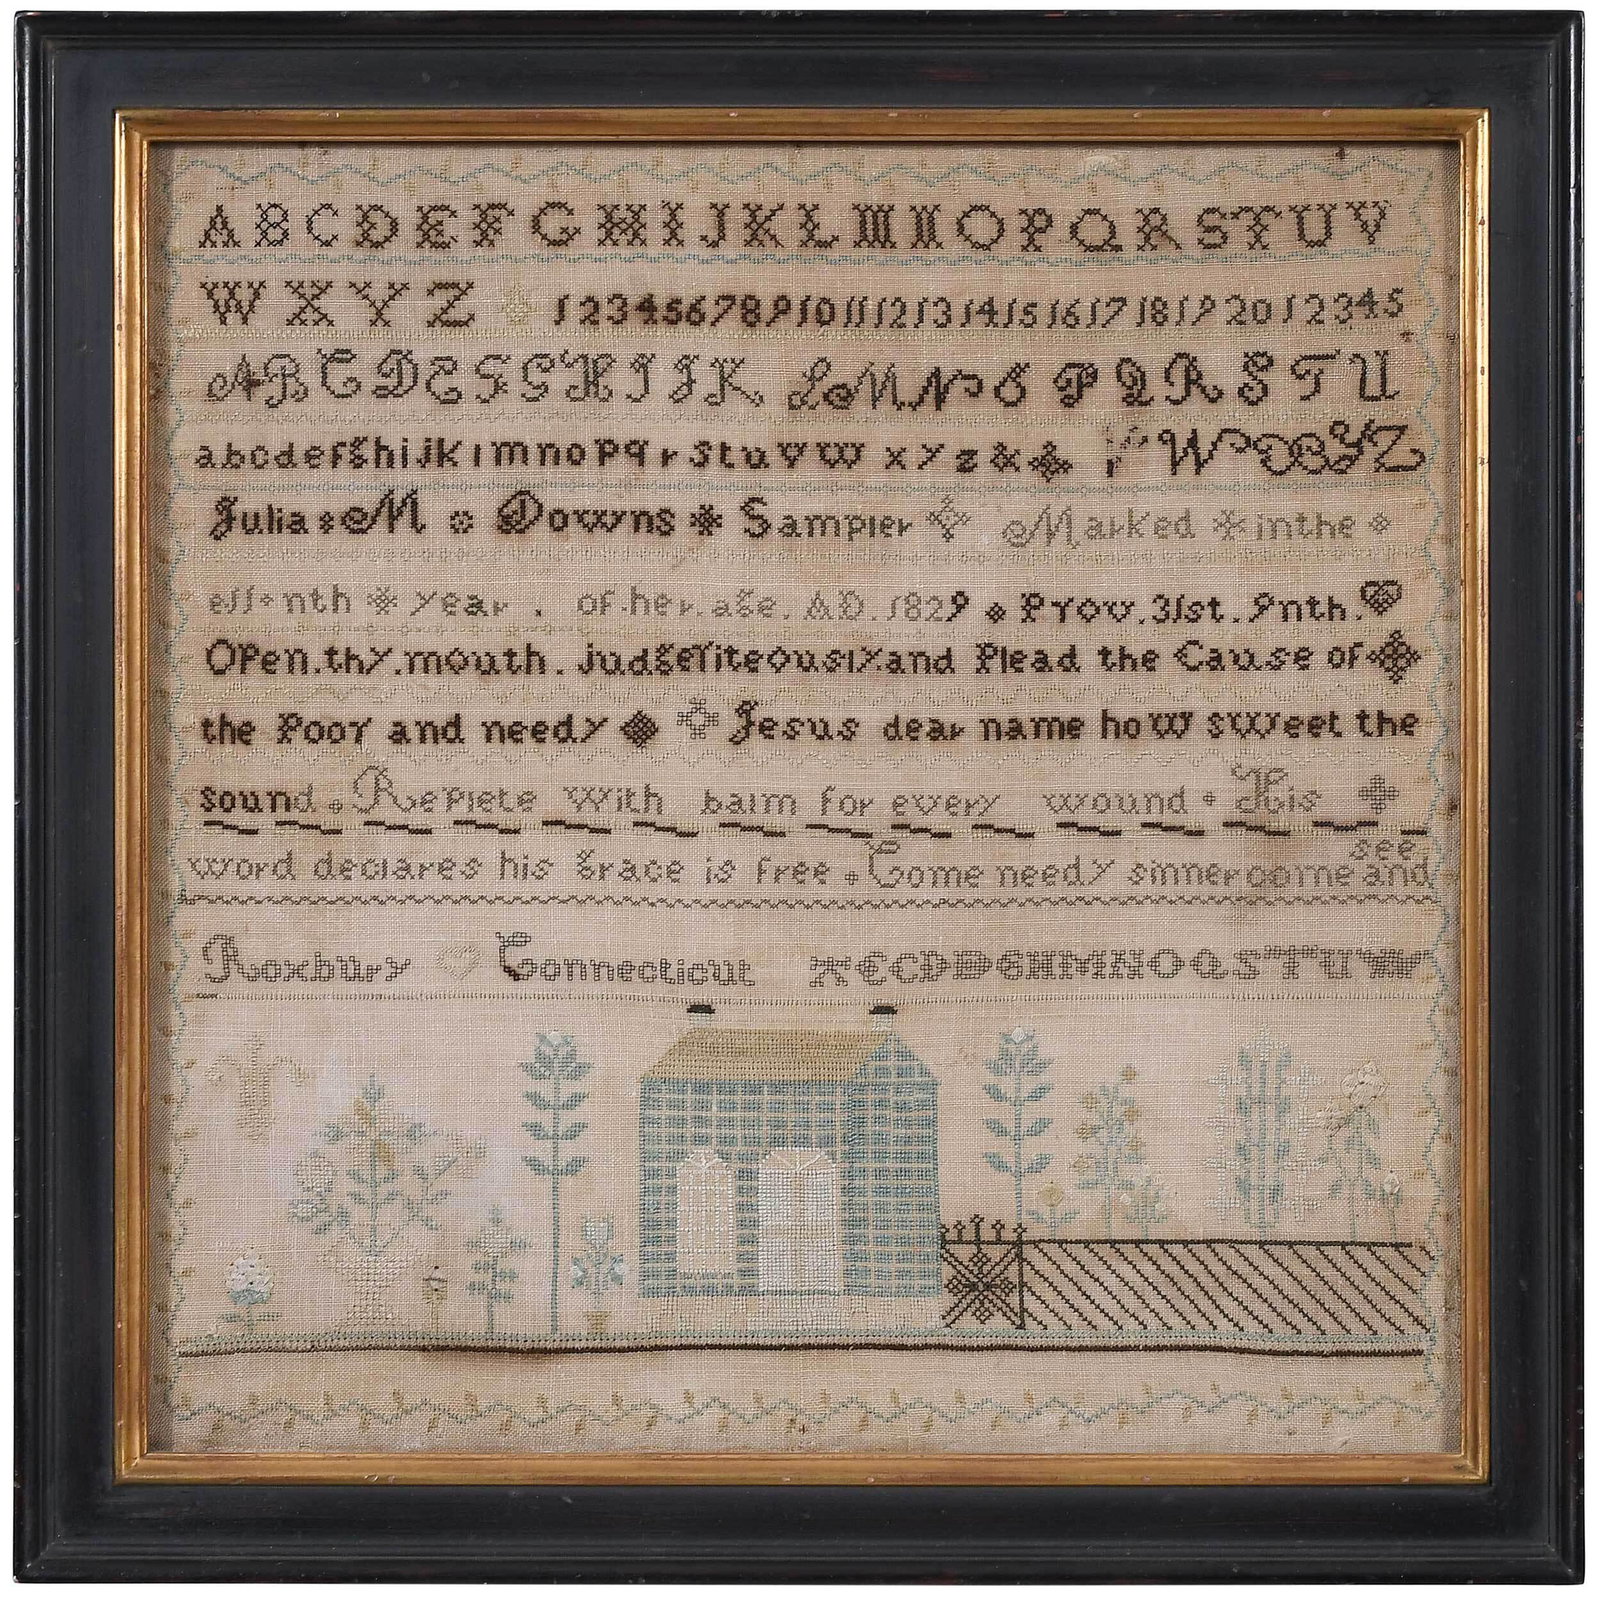 ABCDEFGHIJKLMNOPQRSTUV
WXYZ 123456789101112131415161718192012345
ABCDEFGHIJK LMNOPQRSTU
abcdefghijklmnopqrstuvwxyz& V WXYZ
Julia M Downs Sampler Marked in the
year . of.her.age. AD.1829 Prov.31st.9nth.
Open.thy.mouth. judgeriteously.and Plead the Cause of
the Poor and needy Jesus dear name how sweet the
sound Replete with balm for every wound His
see
word declares his grace is free Come needy sinner come and
Roxbury Connecticut